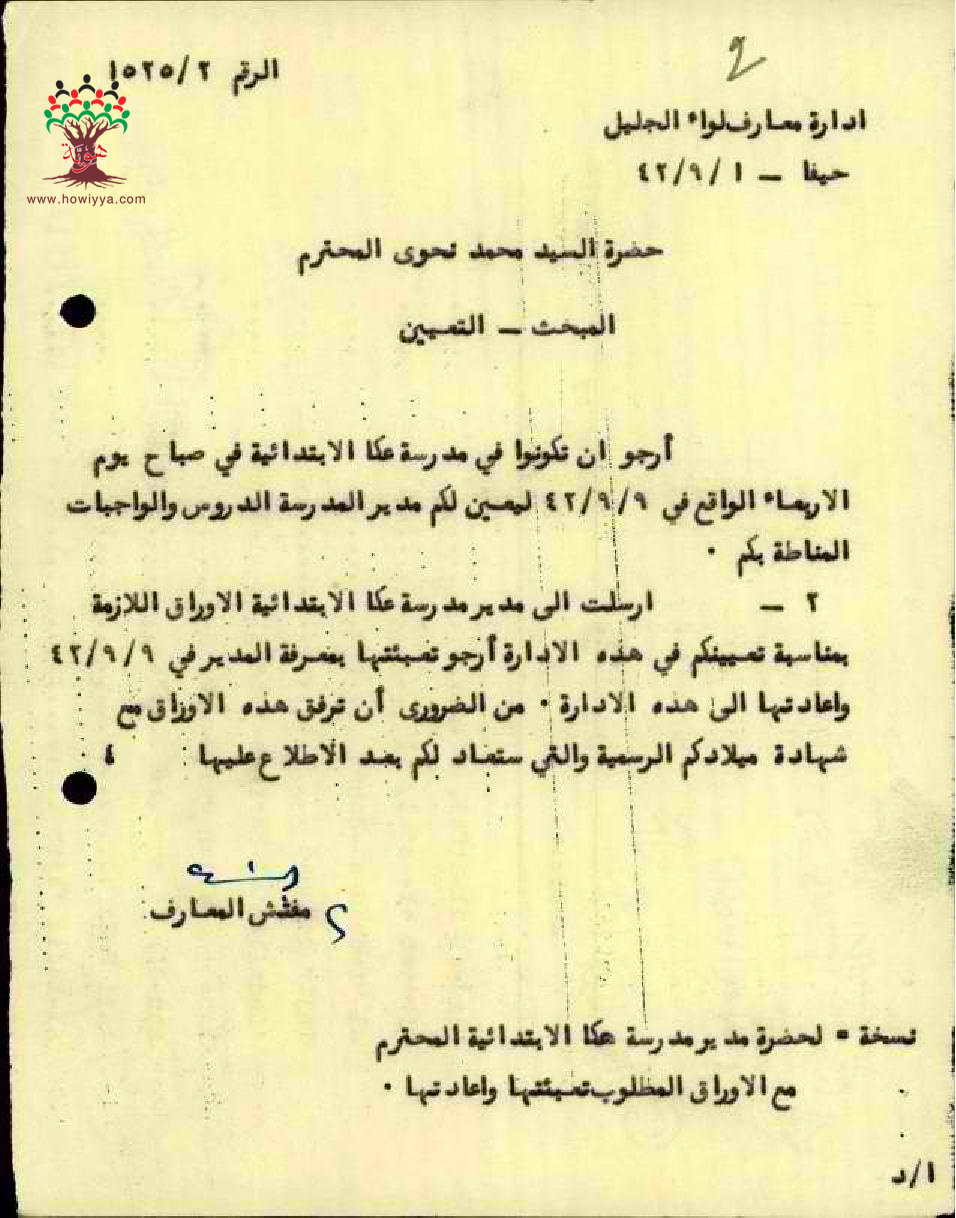 2
الرقم ١٥٢٥/٢
هوية
www.howiyya.com
ادارة معارف لواء الجليل
حيفا – ٤٢/٩/١
حضرة السيد محمد نحوى المحترم
المبحث – التعيين
أرجو ان تكونوا في مدرسة عكا الابتدائية في صباح يوم
الاربعاء الواقع في ٤٢/٩/٩ ليعين لكم مدير المدرسة الدروس والواجبات
المناطة بكم ٠
٢ – ارسلت الى مدير مدرسة عكا الابتدائية الاوراق اللازمة
بمناسبة تعيينكم في هذه الادارة أرجو تعبئتها بمعرفة المدير في ٤٢/٩/٩
واعادتها الى هذه الادارة ٠ من الضرورى أن ترفق هذه الاوراق مع
شهادة ميلادكم الرسمية والتي ستعاد لكم بعد الاطلاع عليها ٤
مفتش المعارف
نسخة = لحضرة مدير مدرسة عكا الابتدائية المحترم
مع الاوراق المطلوب تعبئتها واعادتها ٠
ا/د